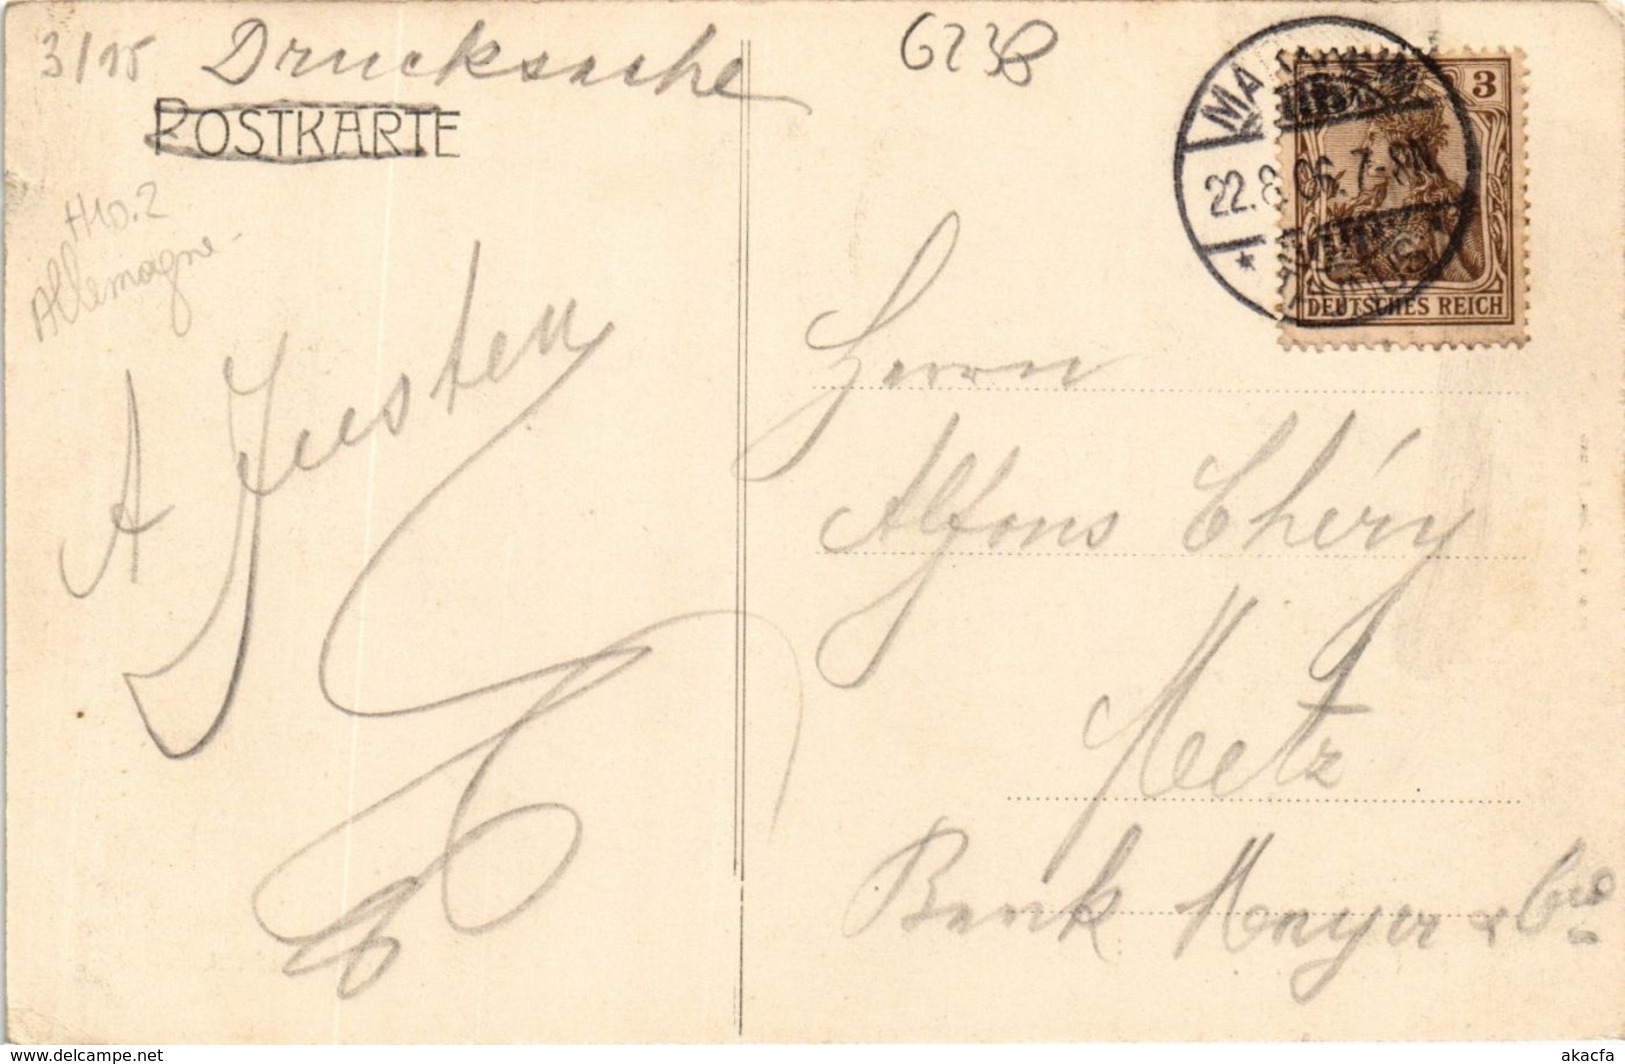 3/15 Drucksache
6238
POSTKARTE
Allemagne
MA
22.8.06.7-8N
3
DEUTSCHES REICH
A Justen
Herrn
Alfons Théry
Metz
Bank Meyer & Cie
www.delcampe.net
akacfa